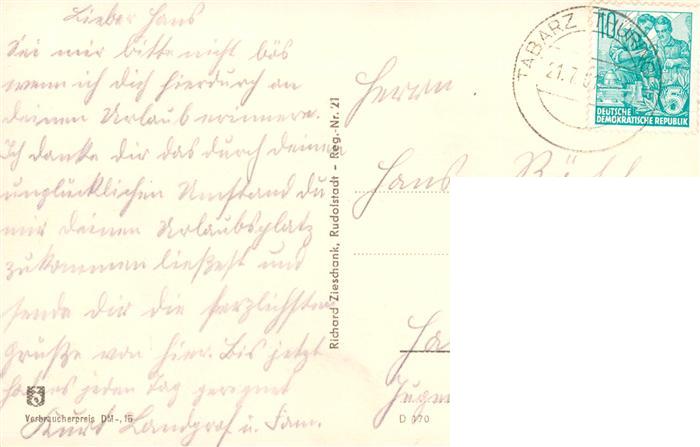 Lieber Hans
Sei mir bitte nicht bös
wenn ich dich hierdurch an
deinen Urlaub erinnere.
Ich danke dir das durch deinen
unglücklichen Umstand du
mir deinen Urlaubsplatz
zukommen ließest und
sende dir die herzlichsten
Grüße von hier. Bis jetzt
hat es jeden Tag geregnet
Kurt Landgraf u. Fam.
Verbraucherpreis DM -,15
Richard Zieschank, Rudolstadt - Reg.-Nr. 21
D 470
TABARZ THÜRING
21.7.
5
DEUTSCHE
DEMOKRATISCHE REPUBLIK
Herrn
Hans